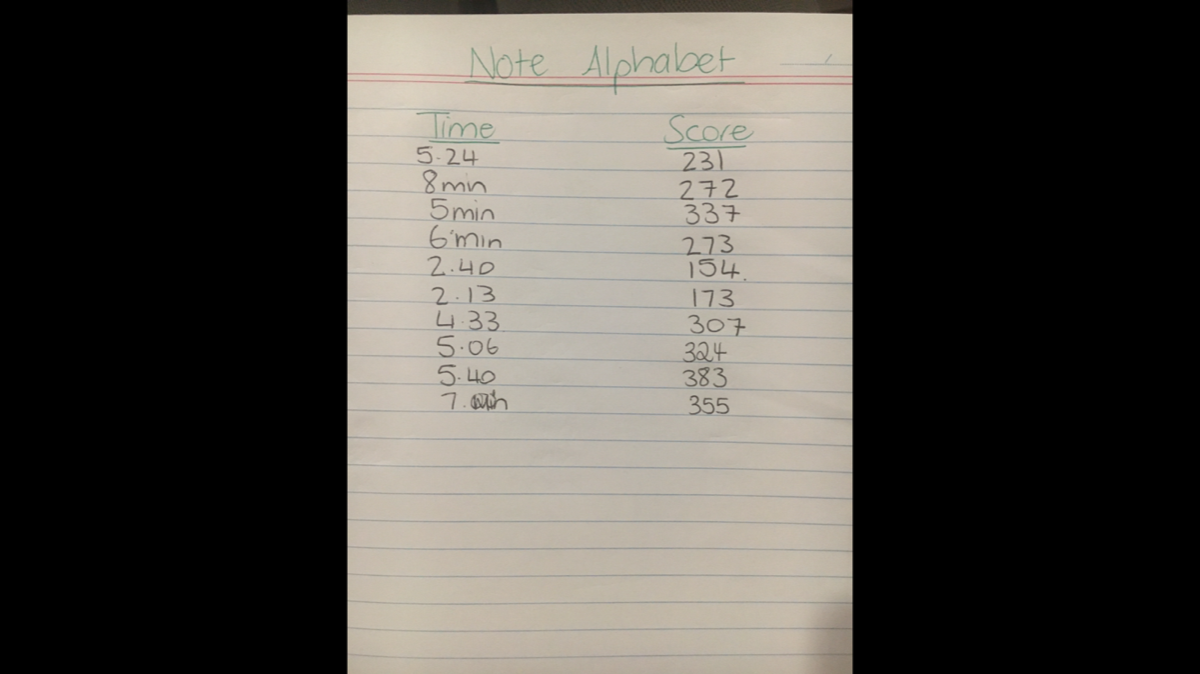 Note Alphabet
Time Score
5.24 231
8min 272
5min 337
6min 273
2.40 154.
2.13 173
4.33 307
5.06 324
5.40 383
7. 355